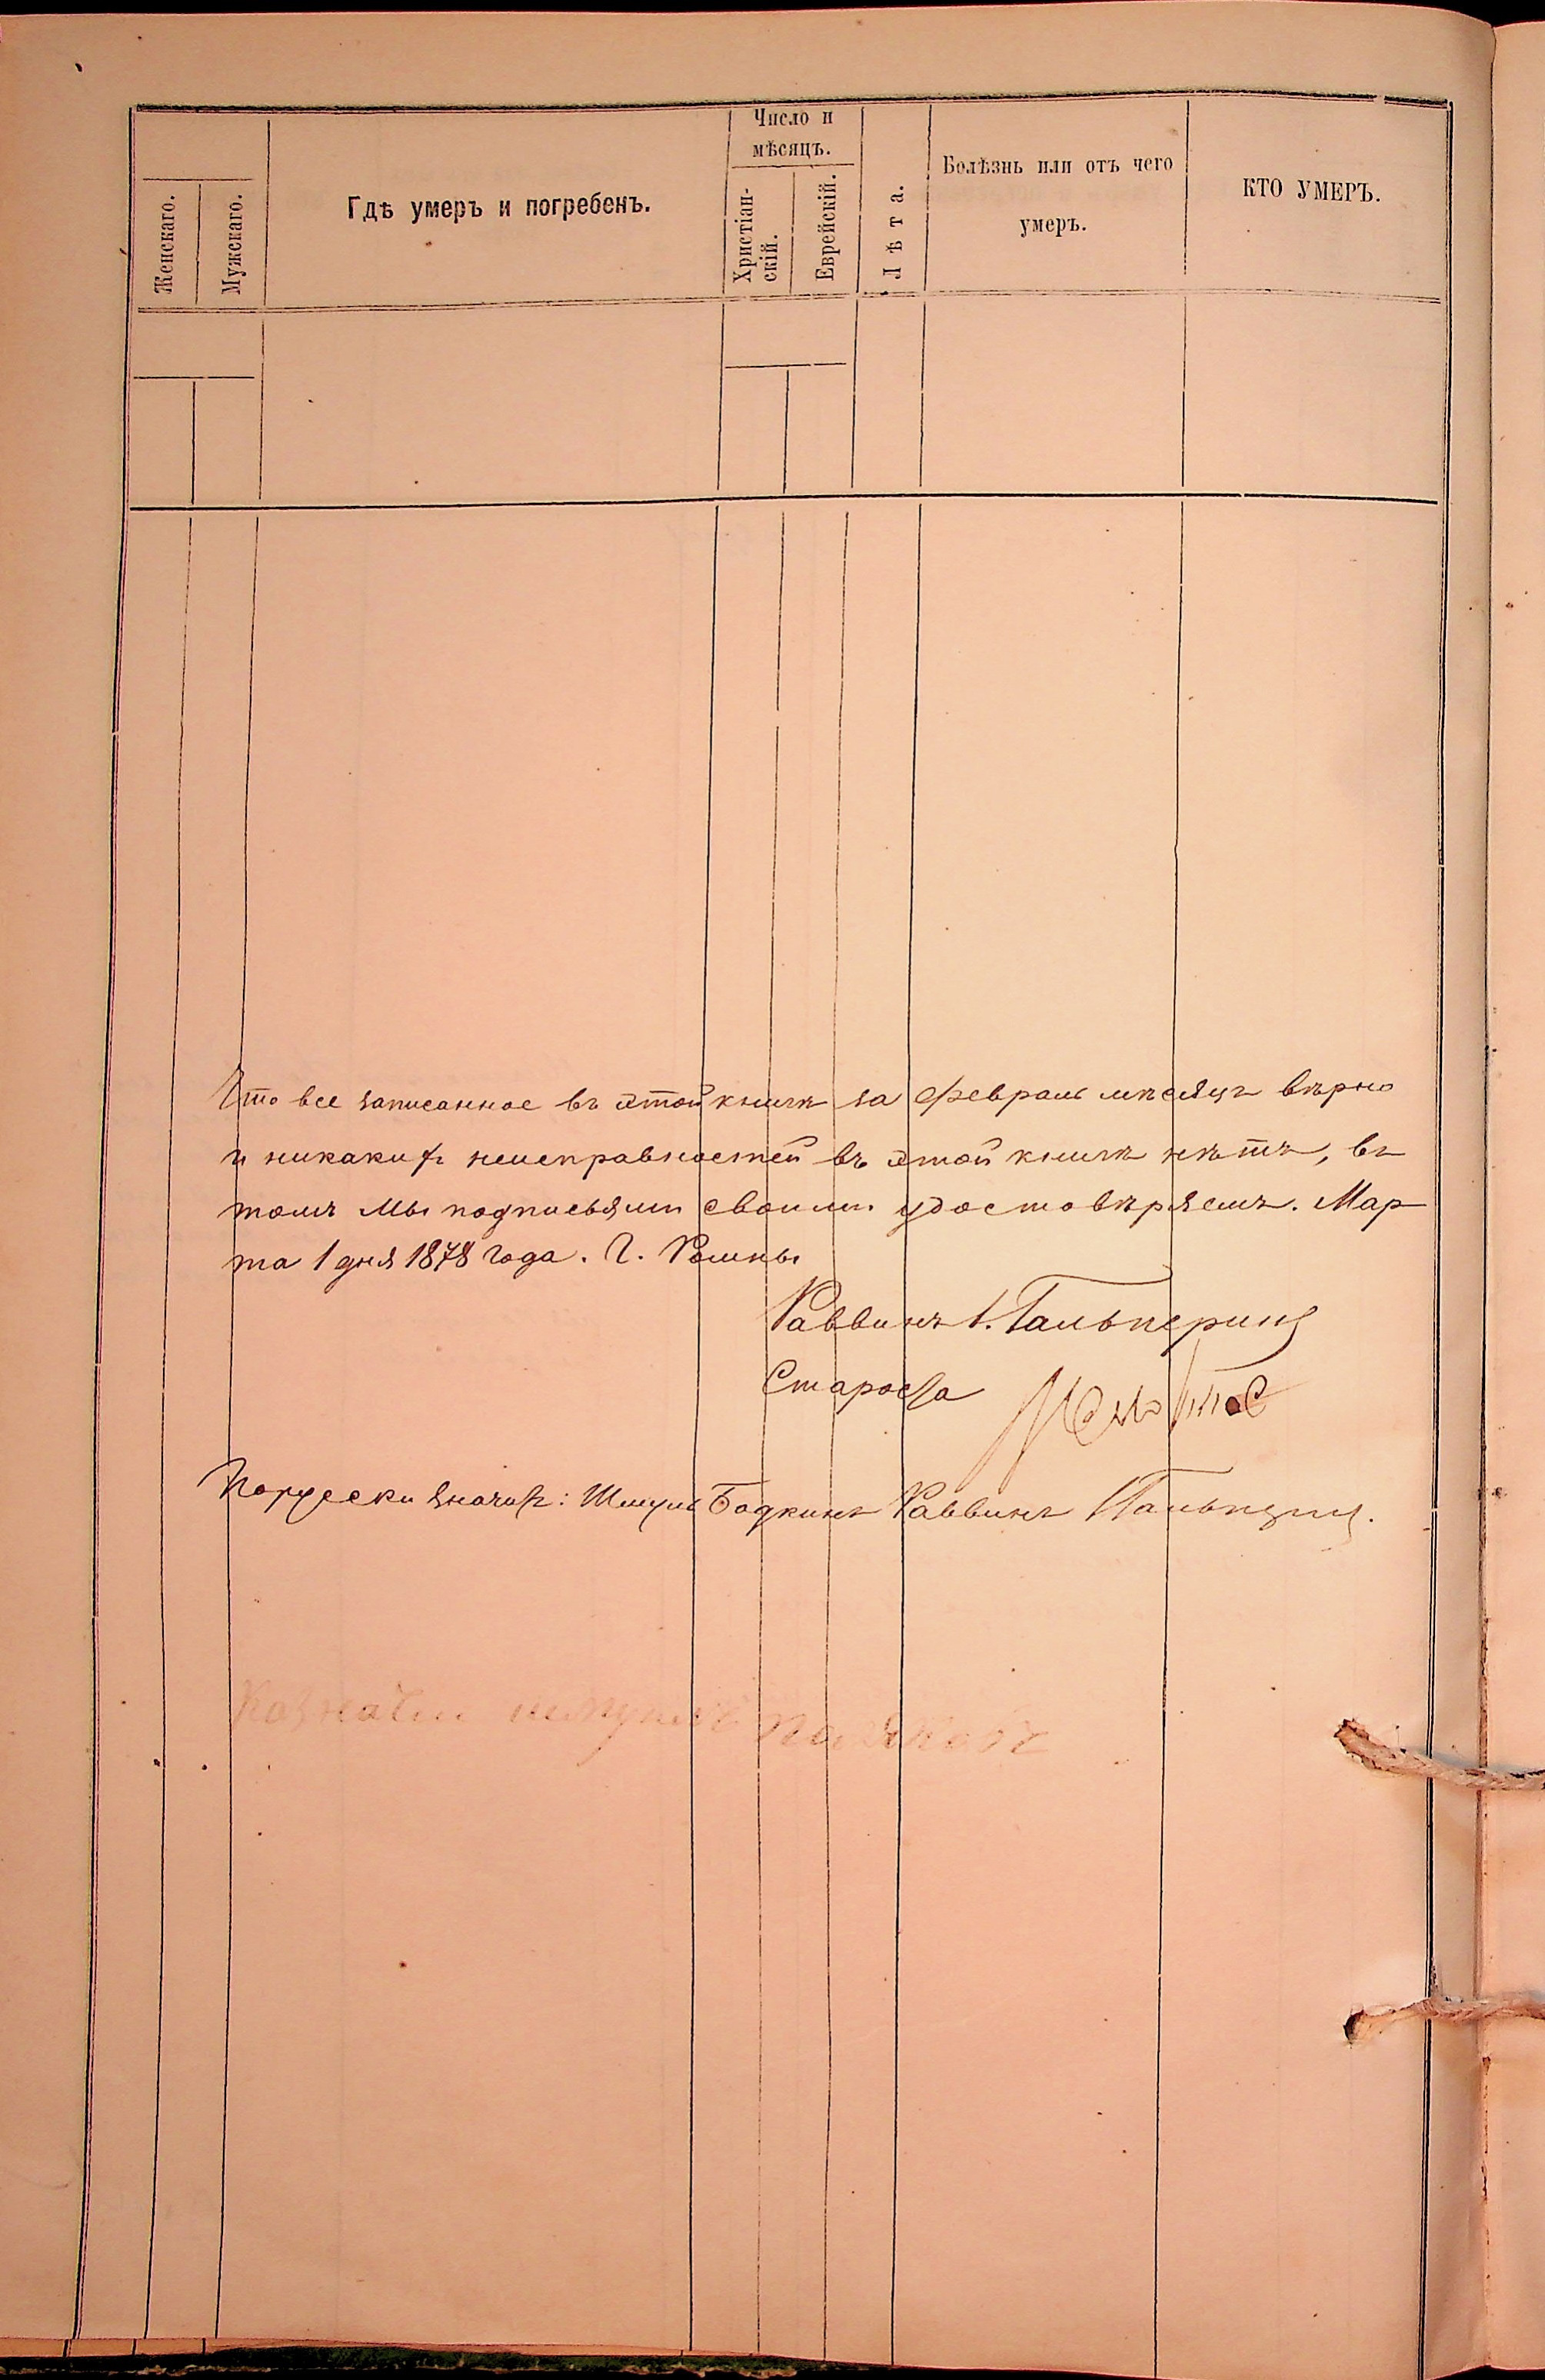 Число и
мѣсяцъ.
Женскаго.
Мужскаго.
Гдѣ умеръ и погребенъ.
Христіан-
скій.
Еврейскій.
Лѣта.
Болѣзнь или отъ чего
умеръ.
КТО УМЕРЪ.
Что все записанное въ этой книгѣ за Февраль мѣсяцъ вѣрно
и никакихъ неисправностей въ этой книгѣ нѣтъ, въ
томъ мы подписьями своими удостовѣряемъ. Мар
та 1 дня 1878 года. Г. Ромны
Раввинъ А. Гальперинъ
Староста
Порусски значитъ: Шмуль Бодкинъ Раввинъ Гальперинъ.
Казначей Поляковъ